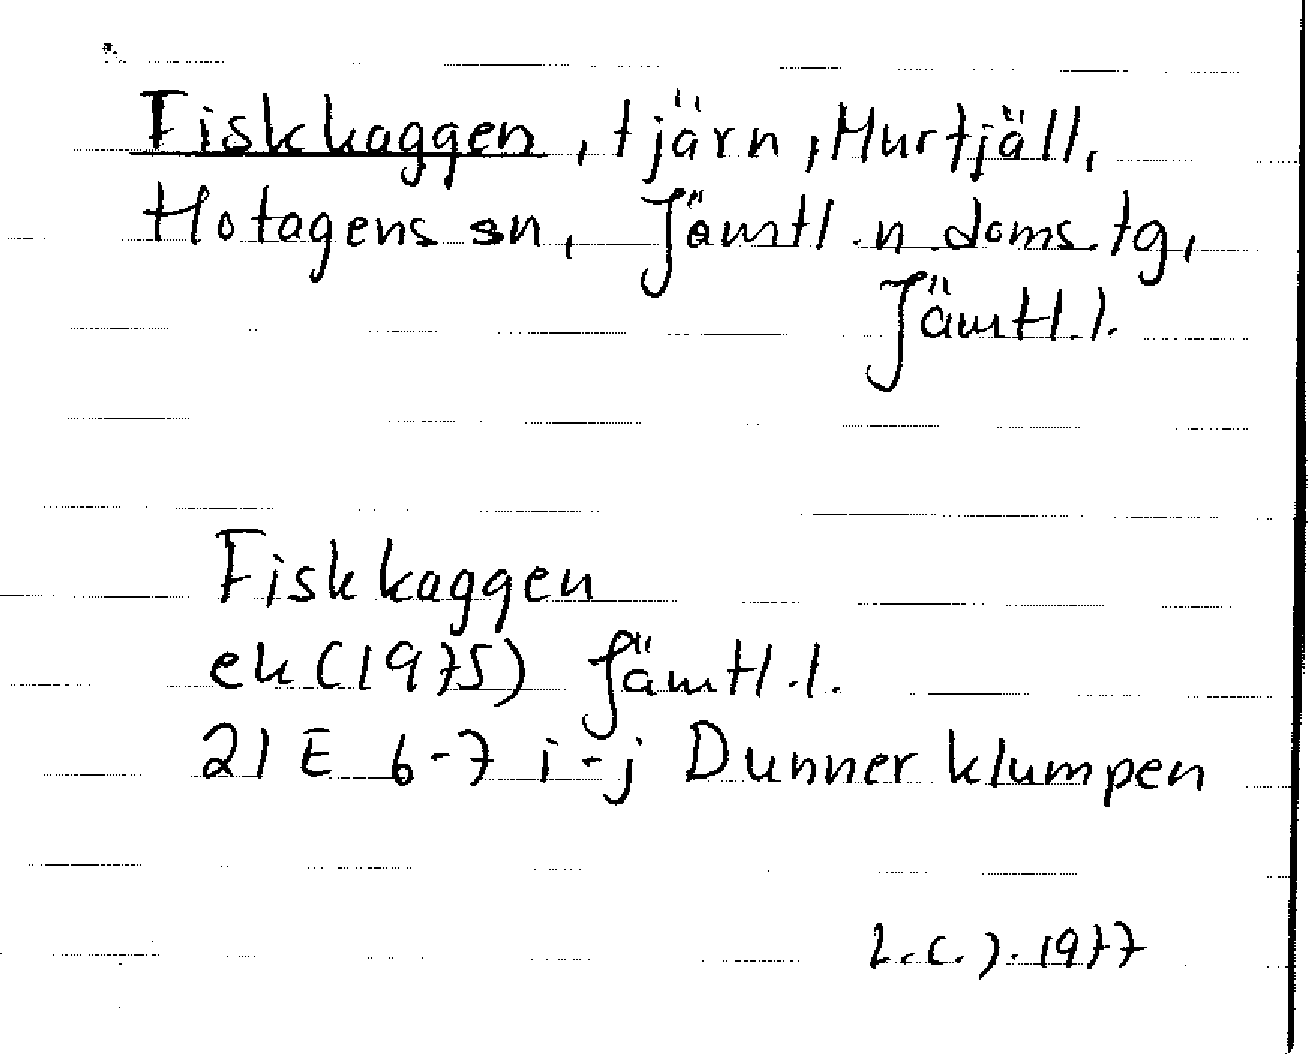 Fiskkaggen, tjärn, Murfjäll,
Hotagens sn, Jämtl. n. doms. tg,
Jämtl. l.
Fiskkaggen
ek (1975) Jämtl. l.
21 E 6-7 i-j Dunnerklumpen
L.C.J. 1977